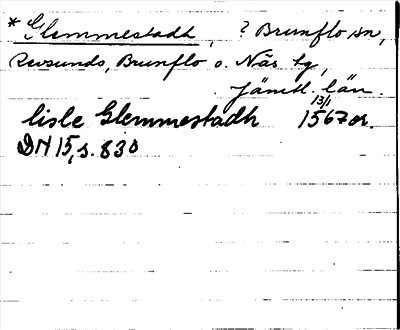 * Glemmestadh, ? Brunflo sn,
Revsunds, Brunflo o. Näs tg,
Jämtl. län.
13/1
lisle Glemmestadh 1567 or.
DN 15, s. 830